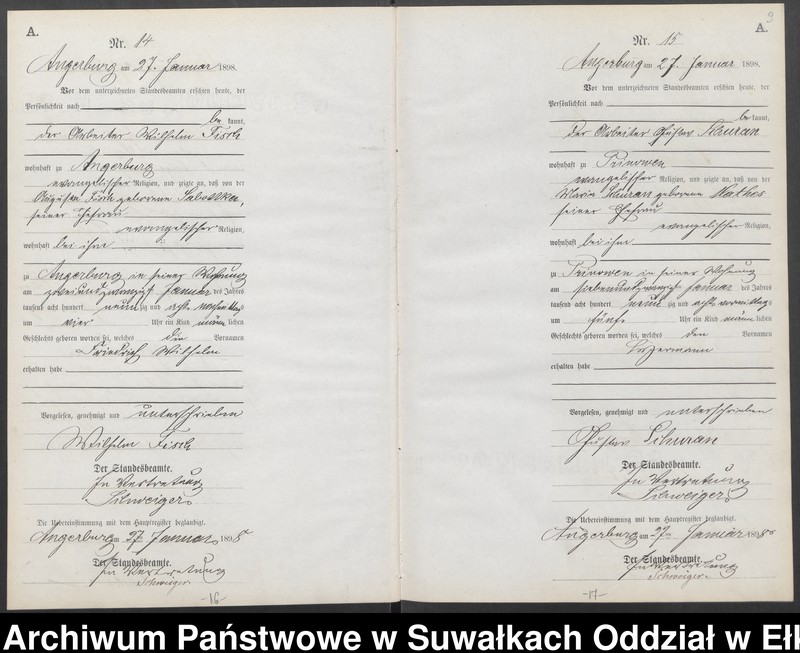 A.
Nr. 14
Angerburg am 27. Januar 1898.
Vor dem unterzeichneten Standesbeamten erschien heute, der
Persönlichkeit nach
be kannt,
der Arbeiter Wilhelm Fisch
wohnhaft zu Angerburg
evangelischer Religion, und zeigte an, daß von der
Auguste Fisch geborene
seiner Ehefrau
evangelischer Religion,
wohnhaft bei ihm
zu Angerburg in seiner Wohnung
am zweiundzwanzigsten Januar des Jahres
tausend acht hundert neun zig und acht Nachmittags
um vier Uhr ein Kind männ lichen
Geschlechts geboren worden sei, welches die Vornamen
Friedrich Wilhelm
erhalten habe
Vorgelesen, genehmigt und unterschrieben
Wilhelm Fisch
Der Standesbeamte.
In Vertretung
Schweiger
Die Uebereinstimmung mit dem Hauptregister beglaubigt.
Angerburg am 27. Januar 1898
Der Standesbeamte.
In Vertretung
Schweiger
-16-
9
A.
Nr. 15
Angerburg am 27. Januar 1898.
Vor dem unterzeichneten Standesbeamten erschien heute, der
Persönlichkeit nach
be kannt,
der Arbeiter Gustav Schuran
wohnhaft zu Prinowen
evangelischer Religion, und zeigte an, daß von der
Maria Schuran geborene Mathes
seiner Ehefrau
evangelischer Religion,
wohnhaft bei ihm
zu Prinowen in seiner Wohnung
am siebenundzwanzigsten Januar des Jahres
tausend acht hundert neun zig und acht Vormittags
um fünf Uhr ein Kind männ lichen
Geschlechts geboren worden sei, welches den Vornamen
Hermann
erhalten habe
Vorgelesen, genehmigt und unterschrieben
Gustav Schuran
Der Standesbeamte.
In Vertretung
Schweiger
Die Uebereinstimmung mit dem Hauptregister beglaubigt.
Angerburg am 27. Januar 1898
Der Standesbeamte.
In Vertretung
Schweiger
-17-
Archiwum Państwowe w Suwałkach Oddział w Eł